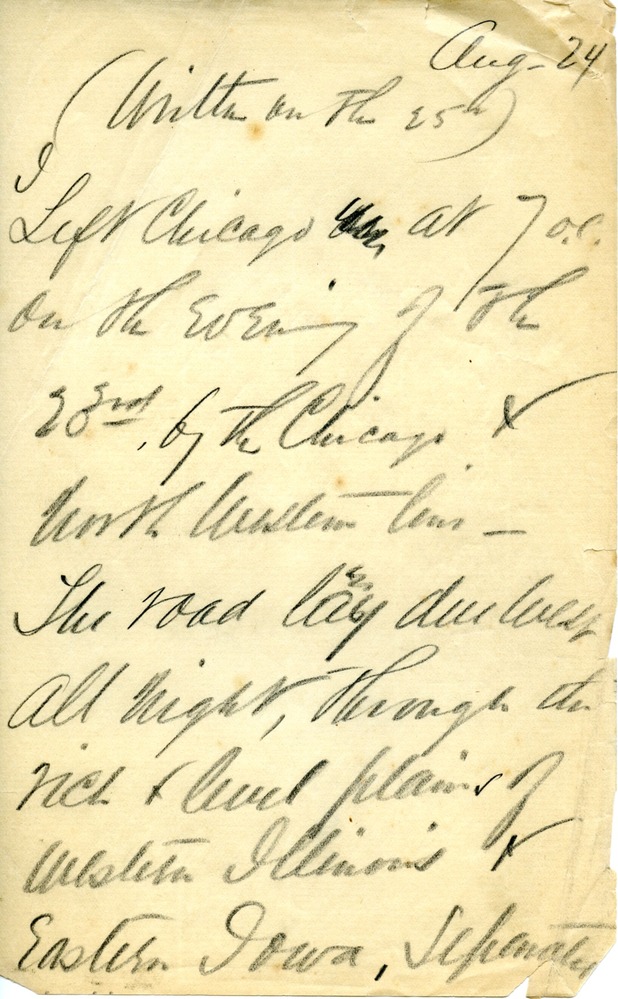 Aug- 24
(Written on the 25th)
I
Left Chicago at 7 o.c.
on the Evening of the
23rd, by the Chicago &
North Western line -
The road lay due West
all night, through the
rich & level plains of
Western Illinois &
Eastern Iowa, Separated